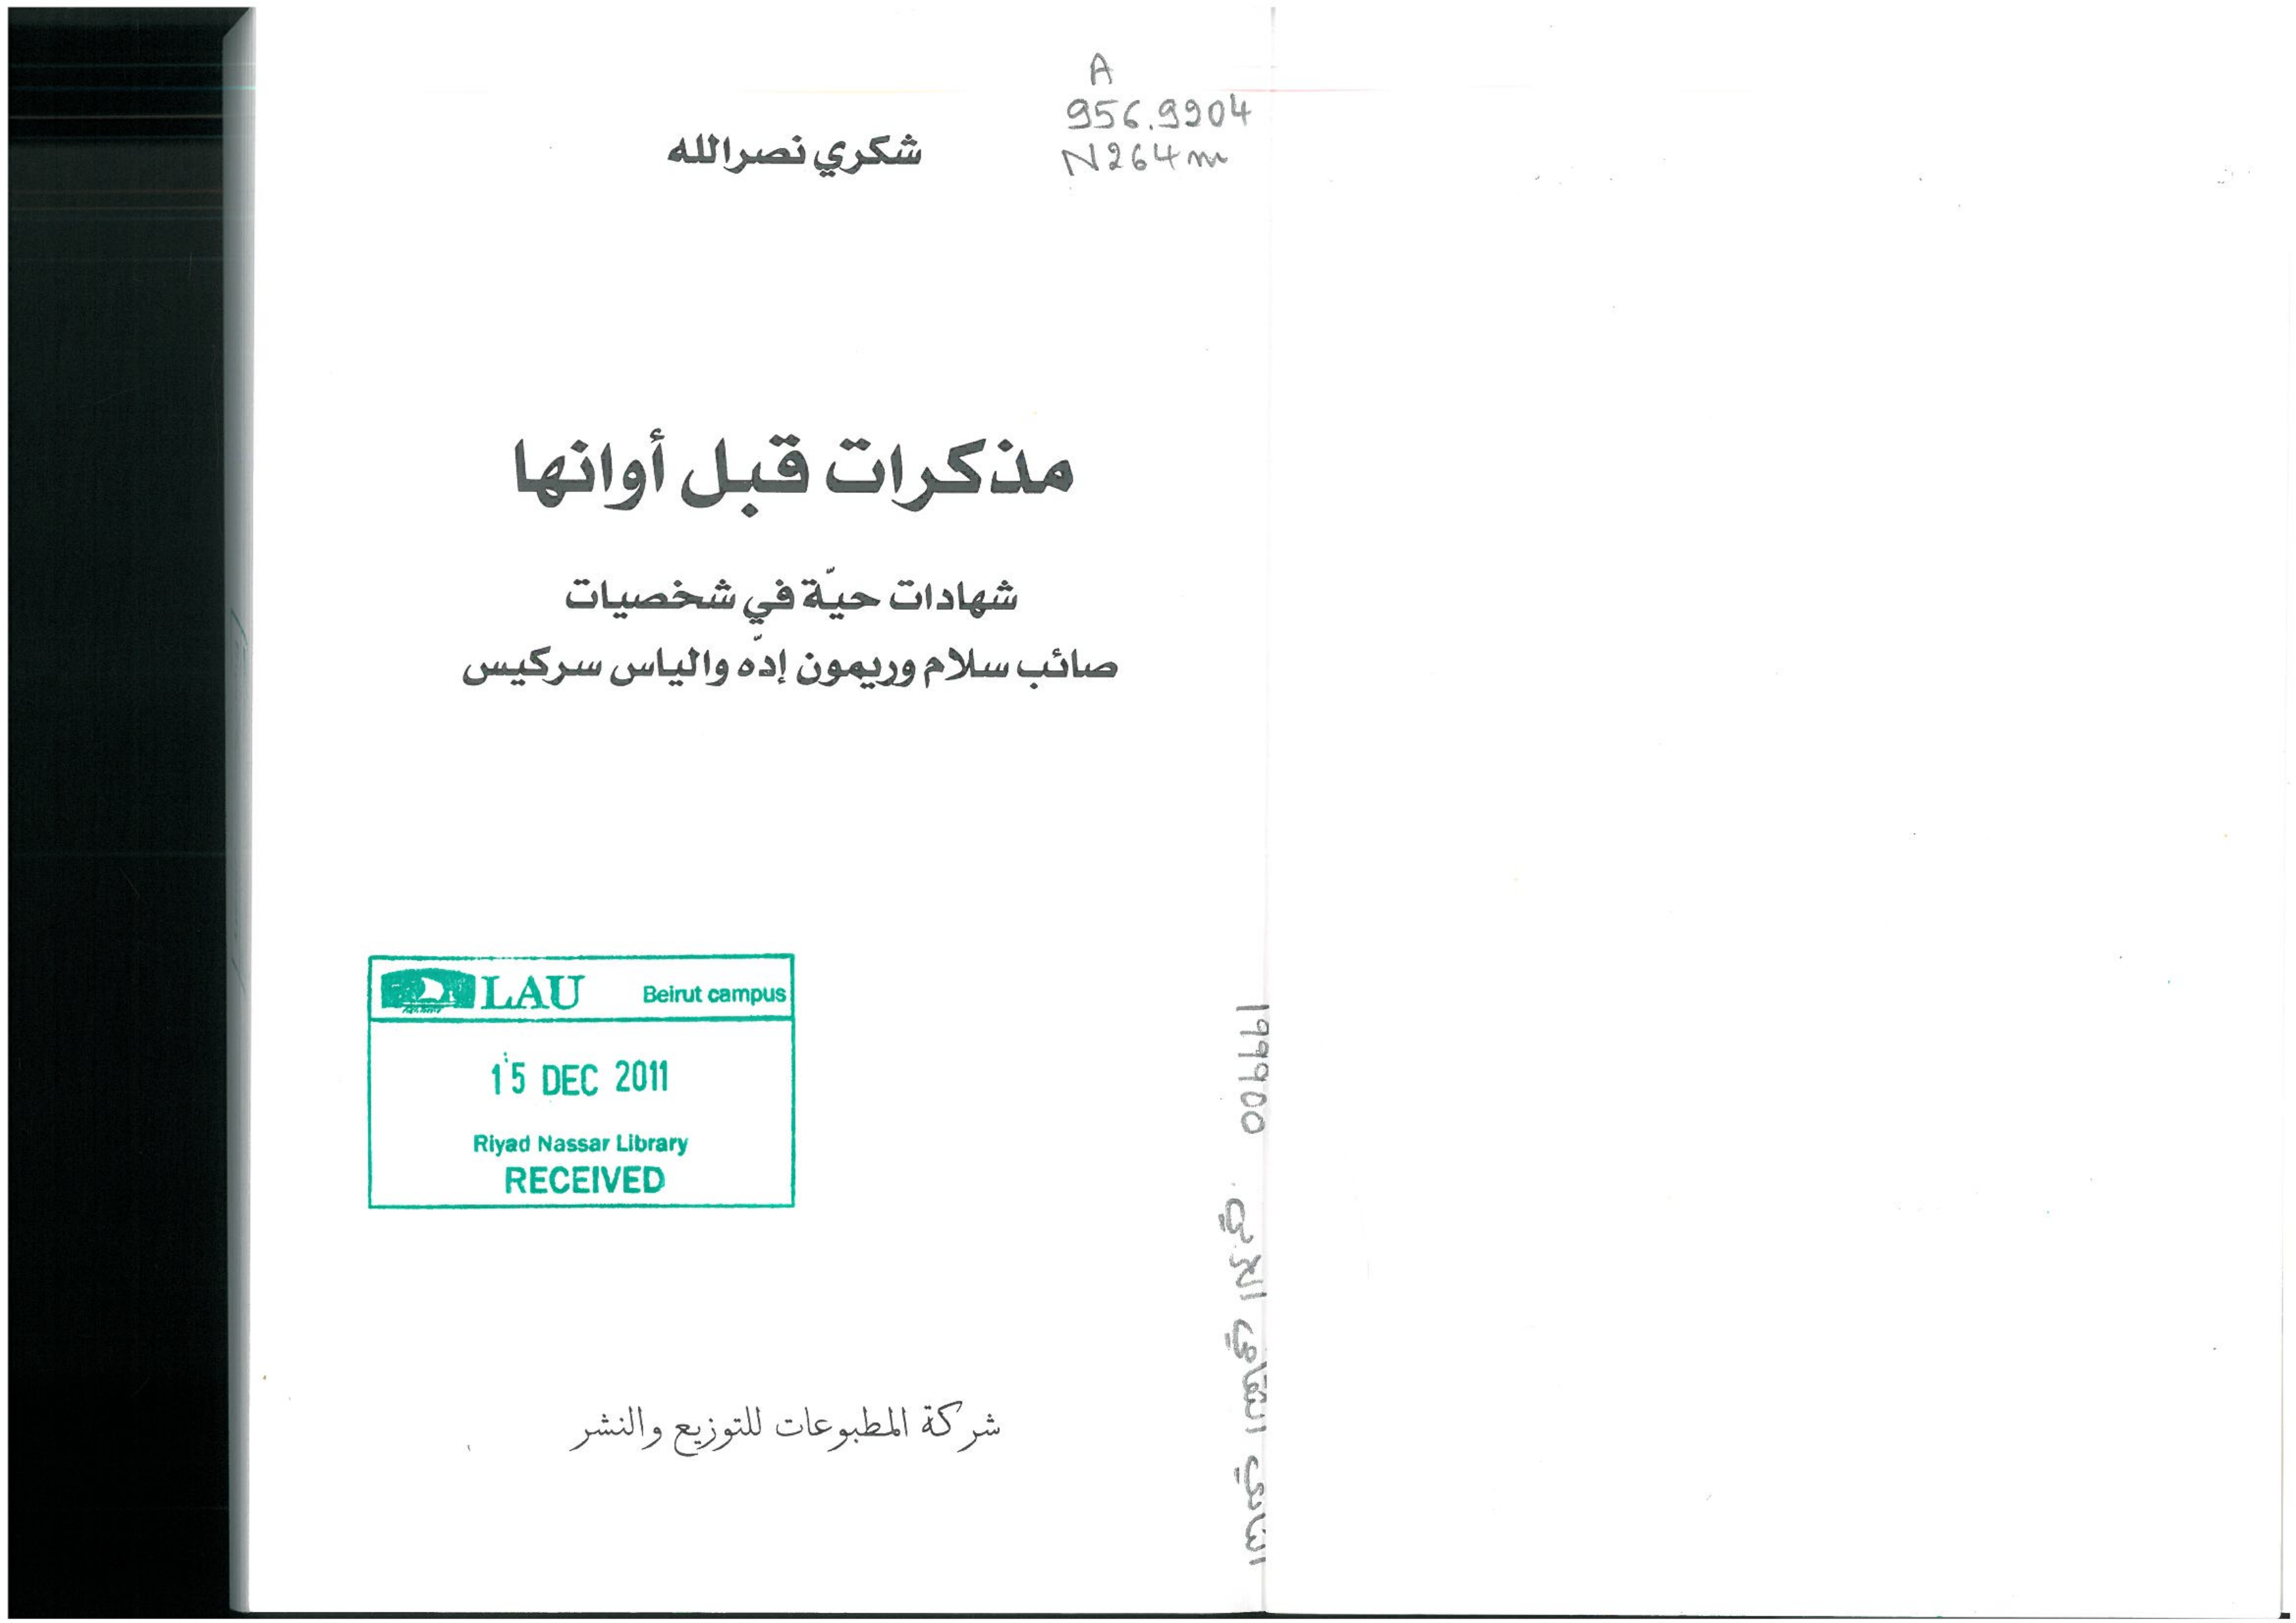 A
956.9904
N264m
شكري نصرالله
مذكرات قبل أوانها
شهادات حيّة في شخصيات
صائب سلام وريمون إدّه والياس سركيس
LAU Beirut campus
15 DEC 2011
Riyad Nassar Library
RECEIVED
شركة المطبوعات للتوزيع والنشر
النادي الثقافي العربي